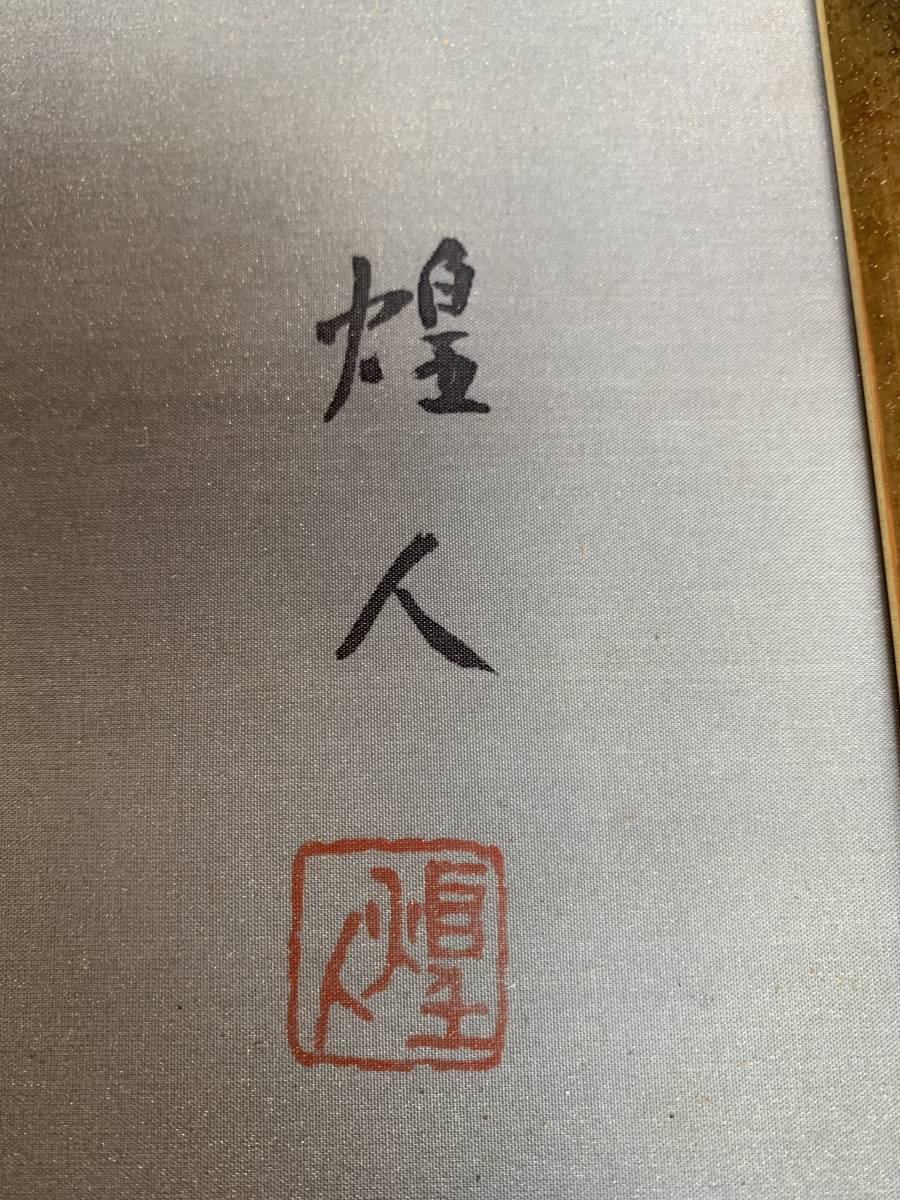 煌人
煌人